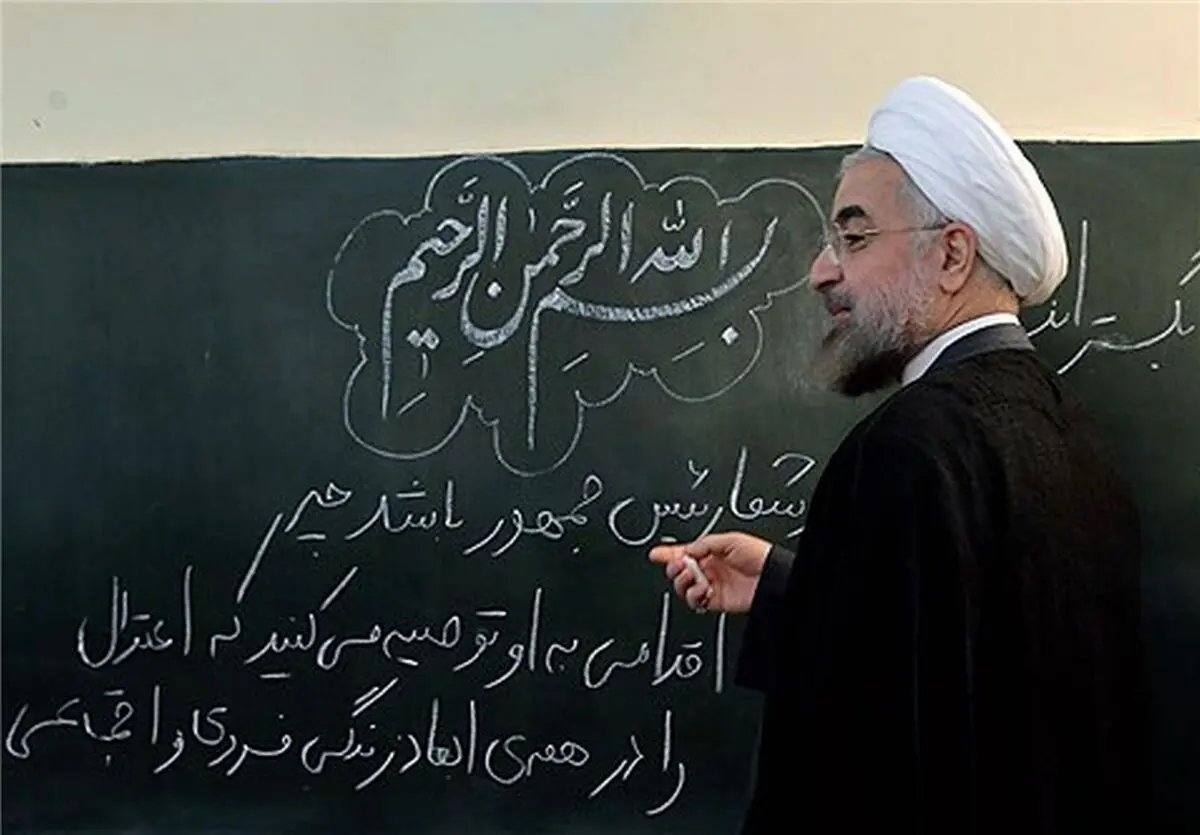 بسم الله الرحمن الرحیم
شما رئیس جمهور باشد چه
اقدامی به او توصیه می کنید که اعتدال
را در همه‌ی ابعاد زندگی فردی و اجتماعی